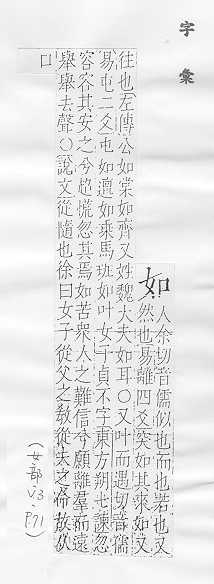 字彙
如
人余切音儒似也而也若也又
然也易離四爻突如其來如又
往也左傳公如棠如齊又姓魏大夫如耳〇又叶而遇切音孺
易屯二爻屯如邅如乘馬班如叶女子貞不字東方朔七諫忽
容容其安之兮超慌忽其焉如苦衆人之難信兮願離羣而遠
舉舉去聲〇說文從隨也徐曰女子從父之敎從夫之命故从
口
(女部 V.3. P.71)